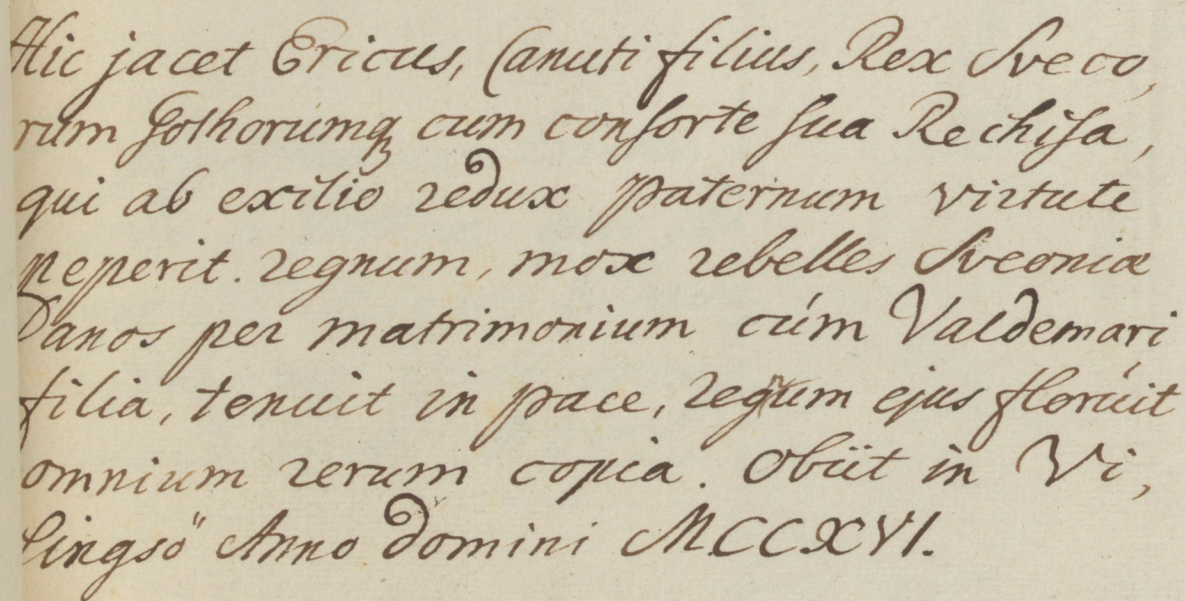 Hic jacet Ericus, Canuti filius, Rex Sveco,
rum Gothorumq; cum conſorte ſua Rechiſa,
qui ab exilio redux paternum virtute
peperit. regnum, mox rebelles Sveoniæ
Danos per matrimonium cúm Valdemari
filia, tenuit in pace, regum ejus floruit
omnium rerum copia. Obiit in Vi,
singsö Anno domini MCCXVI.